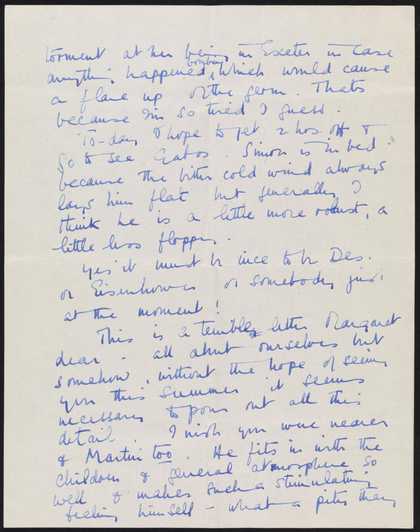 torment at her being in Exeter in case
bombing
anything happened, which would cause
a flare up of the germ. Thats
because Im so tired I guess.
To-day I hope to get 2 hos off &
go to see Gabos. Simon is in bed
because the bitter cold wind always
lays him flat but generally I
think he is a little more robust, a
little less floppy.
Yes it must be nice to be Des.
or Eisenhower or somebody just
at the moment!
This is a terrible letter Margaret
dear - all about ourselves but
somehow, without the hope of seeing
you this summer it seems
necessary to pour out all this
detail. I wish you were nearer
& Martin too. He fits in with the
children & general atmosphere so
well & makes such a stimulating
feeling himself - what a pity they